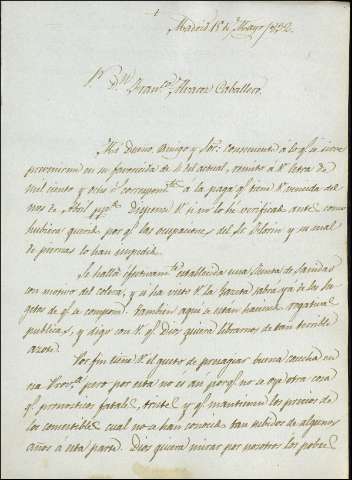 Madrid 15 de Mayo
Sr. Dn. Franco. Alvarez Caballero.
Mi dueño, Amigo y Sor: consecuente á lo q. se sirve
prevenirme en su favorecida de 4 del actual, remito á V. letra de
mil ciento y ocho rs. correspondtes á la paga q. tiene V. vencida del
mes de Abril ppdo. V. si no lo he verificado antes como
hubiera querido por q. las ocupaciones del Sr. y su mal
de piernas lo han impedido.
Se halla efectivamte. establecida una Junta de Sanidad
con motivo del colera, y si ha visto V. la Gazeta sabrá ya de los su-
getos de q. se compone. Tambien aqui se estan haciendo rogativas
publicas, y digo con V. q. Dios quiera librarnos de tan terrible
azote.
Por fin tiene V. el gusto de presagiar buena cosecha en
esa Prova. pero por esta no es asi porq. no se oye otra cosa
q. pronosticos fatales, tristes y q. mantienen los precios de
los comestibles cual no se han conocido tan subidos de algunos
años á esta parte. Dios quiera mirar por nosotros los pobres